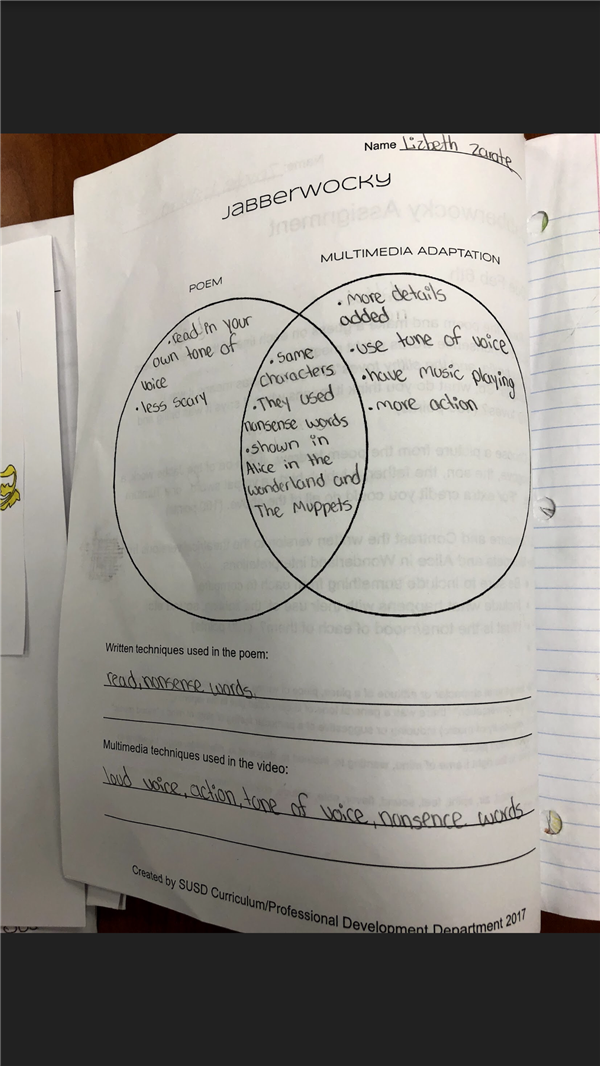 Name Lizbeth Zarate
Jabberwocky
MULTIMEDIA ADAPTATION
POEM
• read in your
own tone of
voice
• less scary
• same
characters
• They used
nonsense words
• shown in
Alice in the
wonderland and
The Muppets
• more details
added
• use tone of voice
• have music playing
• more action
Written techniques used in the poem:
read, nonsense words.
Multimedia techniques used in the video:
loud voice, action, tone of voice, nonsence words
Created by SUSD Curriculum/Professional Development Department 2017